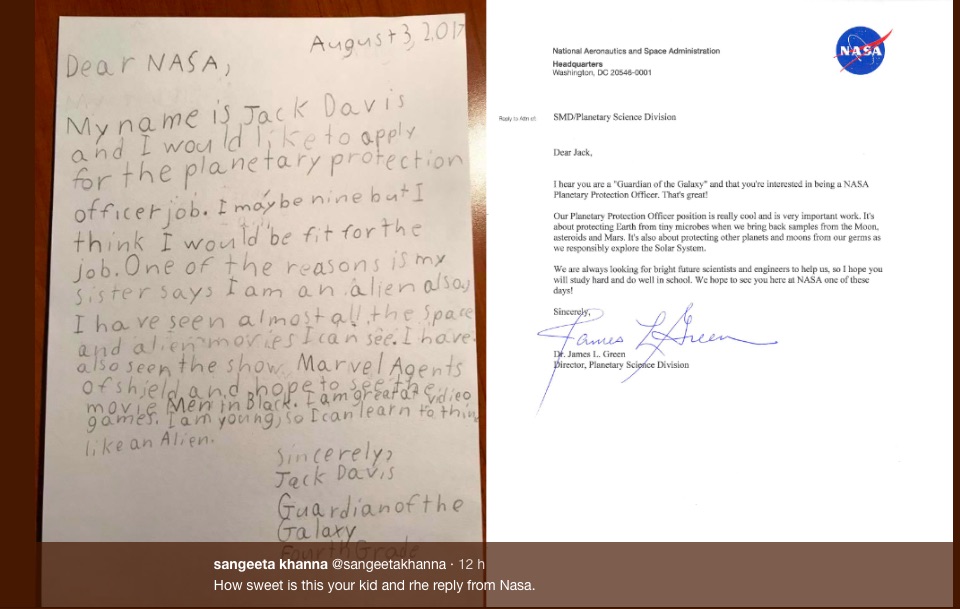 August 3, 2017
Dear NASA,
My name is Jack Davis
and I would like to apply
for the planetary protection
officer job. I may be nine but I
think I would be fit for the
job. One of the reasons is my
sister says I am an alien also,
I have seen almost all the space
and alien movies I can see. I have
also seen the show Marvel Agents
of shield and hope to see the
movie Men in Black. I am great at vidieo
games. I am young, so I can learn to thin
like an Alien.
Sincerely,
Jack Davis
Guardian of the
Galaxy
Fourth Grade
NASA
National Aeronautics and Space Administration
Headquarters
Washington, DC 20546-0001
Reply to Attn of:
SMD/Planetary Science Division
Dear Jack,
I hear you are a "Guardian of the Galaxy" and that you're interested in being a NASA
Planetary Protection Officer. That's great!
Our Planetary Protection Officer position is really cool and is very important work. It's
about protecting Earth from tiny microbes when we bring back samples from the Moon,
asteroids and Mars. It's also about protecting other planets and moons from our germs as
we responsibly explore the Solar System.
We are always looking for bright future scientists and engineers to help us, so I hope you
will study hard and do well in school. We hope to see you here at NASA one of these
days!
Sincerely,
James L Green
Dr. James L. Green
Director, Planetary Science Division
sangeeta khanna @sangeetakhanna · 12 h
How sweet is this your kid and rhe reply from Nasa.